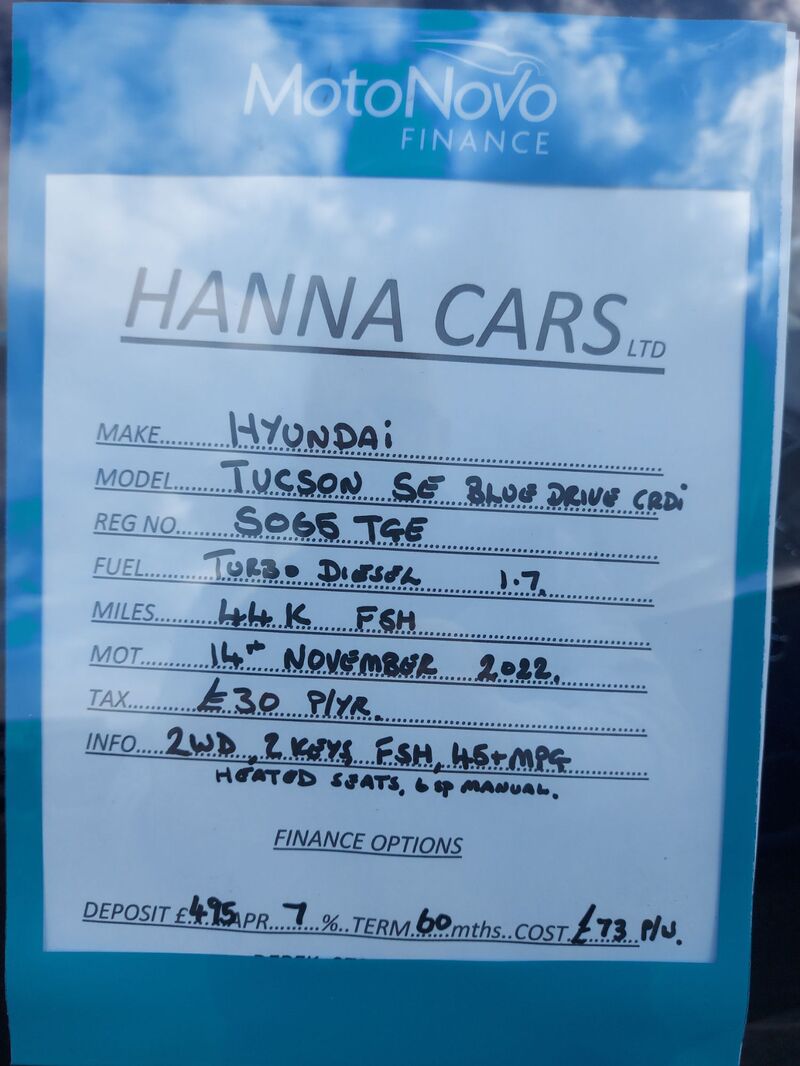 MotoNovo
FINANCE
HANNA CARS LTD
MAKE..........HYUNDAi
MODEL......TUCSON SE BLUE DRIVE CRDi
REG NO......SO65 TGE
FUEL.........TURBO DIESEL 1.7.
MILES........44K FSH
MOT..........14TH NOVEMBER 2022.
TAX...........£30 P/YR.
INFO....2WD, 2 KEYS FSH, 45+MPG
HEATED SEATS, 6 SP MANUAL.
FINANCE OPTIONS
DEPOSIT £495 APR...7...%..TERM.60mths..COST.£73 P/W.